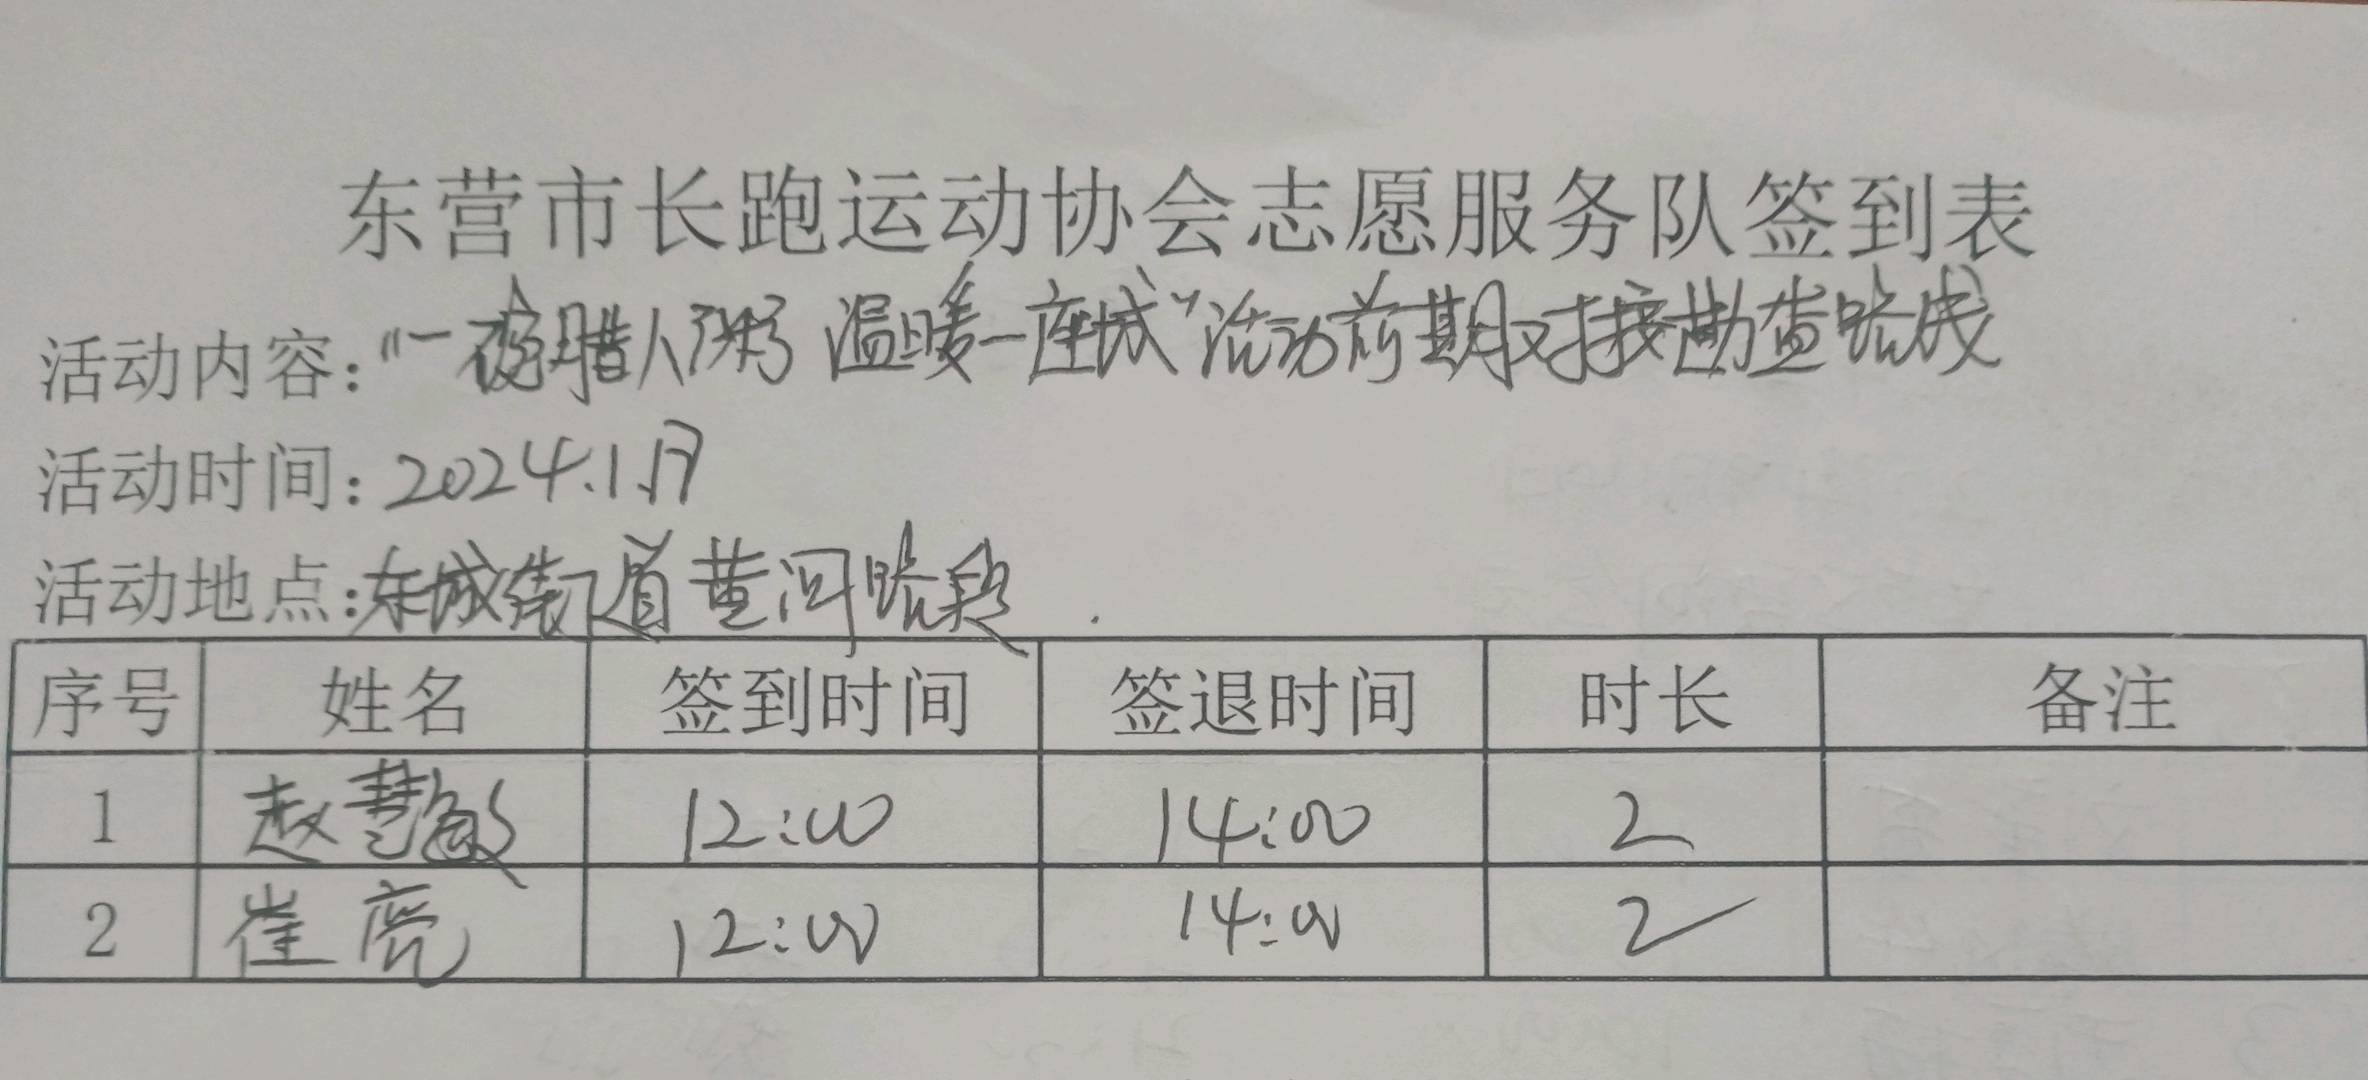 东营市长跑运动协会志愿服务队签到表
活动内容：“一碗腊八粥 温暖一座城”活动前期对接勘查路线
活动时间：2024.1.17
活动地点：东城街道黄河路段
序号 姓名 签到时间 签退时间 时长 备注
1 赵慧敏 12:00 14:00 2
2 崔亮 12:00 14:00 2